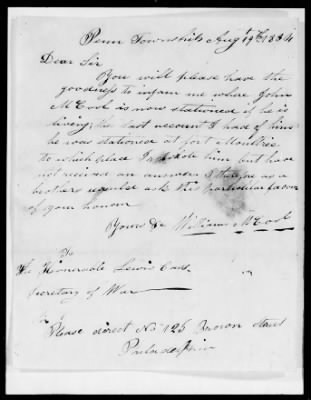 Penn Township Augt 19th 1834
Dear Sir
You will please have the
goodness to infam me where John
McCook is now stationed if he is
living; the last account I had of him
he was stationed at fort Moultrie
to which place I wrote him but have
not received an answer I therefore as a
brothers request ask this particular favour
of your honour
Yours &c William McCook
To
The Honerable Lewis Cass
Secretary of War
Please direct No 125 Brown street
Philadelphia